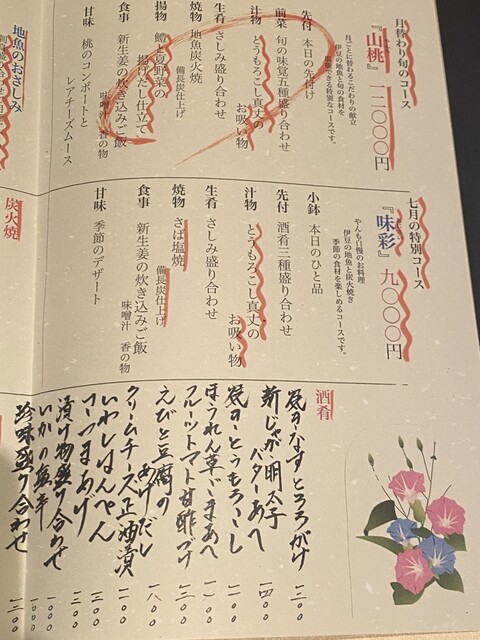 月替わり旬のコース
『山桃』一二〇〇〇円
月ごとに替わるこだわりの献立
伊豆の地魚と旬の食材を
堪能できる特別なコースです。
先付 本日の先付け
前菜 旬の味覚五種盛り合わせ
汁物 とうもろこし真丈の
お吸い物
生肴 さしみ盛り合わせ
焼物 地魚炭火焼
備長炭仕上げ
揚物 鱧と夏野菜の
揚げだし仕立て
食事 新生姜の炊き込みご飯
味噌汁 香の物
甘味 桃のコンポートと
レアチーズムース
地魚のおさしみ
七月の特別コース
『味彩』九〇〇〇円
やんも自慢のお料理
伊豆の地魚と炭火焼き
季節の食材を楽しめるコースです。
小鉢 本日のひと品
先付 酒肴三種盛り合わせ
汁物 とうもろこし真丈の
お吸い物
生肴 さしみ盛り合わせ
焼物 さば塩焼
備長炭仕上げ
食事 新生姜の炊き込みご飯
味噌汁 香の物
甘味 季節のデザート
炭火焼
酒肴
なすとろろがけ 一三〇〇
新じゃが明太子
バターあへ 一四〇〇
とうもろこし 一一〇〇
ほうれん草ごまあへ 一一〇〇
フルーツトマト甘酢づけ 一三〇〇
えびと豆腐の
あげだし 一八〇〇
クリームチーズ正油漬 一一〇〇
いわしはんぺん 一三〇〇
さつまあげ 一三〇〇
漬け物盛り合わせ 一三〇〇
いかの塩辛 一〇〇〇
珍味盛り合わせ 一三〇〇